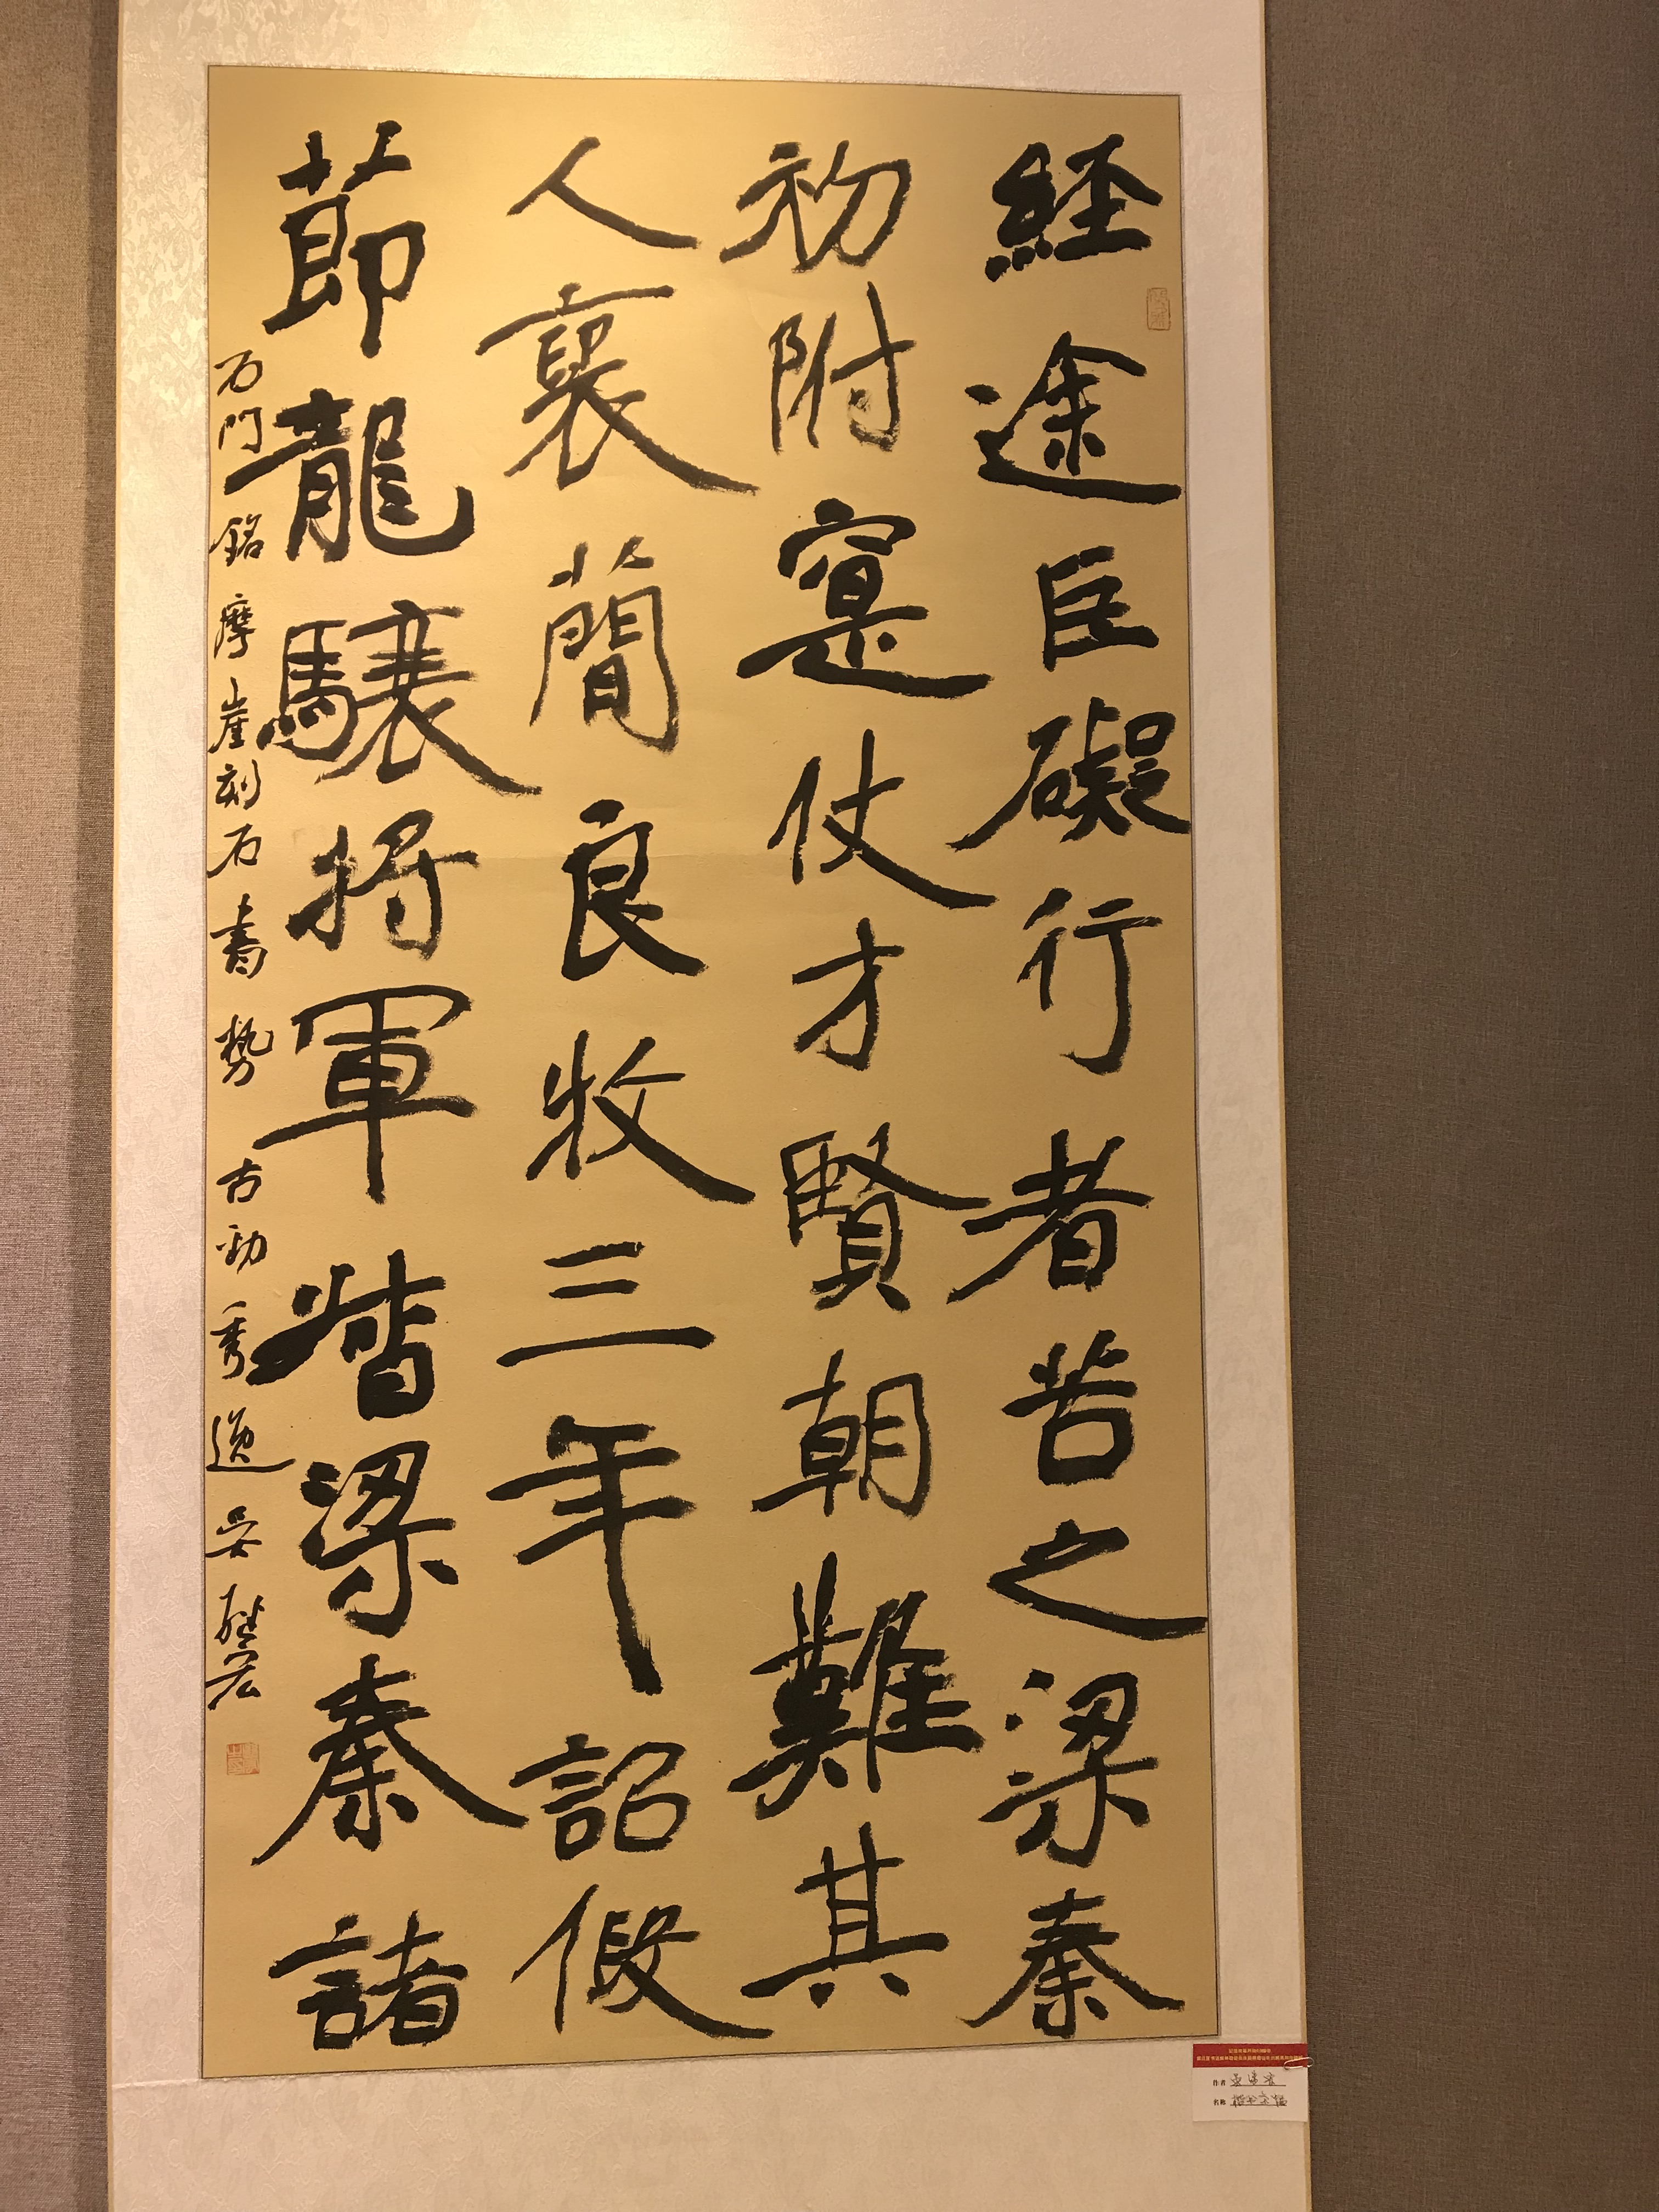 経途巨礙行者苦之梁秦
初附寔仗才賢朝難其
人褒蕳良牧三年詔假
莭龍驤將軍督梁秦諸
石門銘摩崖刻石書勢 古勁秀逸
作者
名称